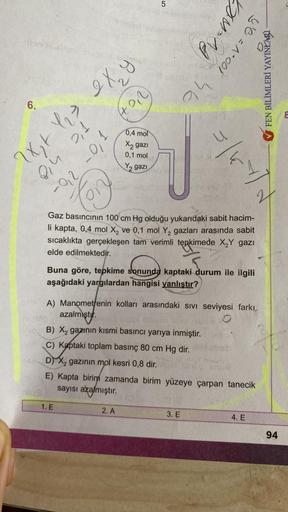 5
PV = nRT
100.V = 0,5
0,4
FEN BİLİMLERİ YAYINLARI
6.
0,4 mol
X₂ gazı
0,1 mol
Y₂ gazı
Gaz basıncının 100 cm Hg olduğu yukarıdaki sabit hacim-
li kapta, 0,4 mol X₂ ve 0,1 mol Y₂ gazları arasında sabit
sıcaklıkta gerçekleşen tam verimli tepkimede X₂Y gazı
elde edilmektedir.
Buna göre, tepkime sonunda kaptaki durum ile ilgili
aşağıdaki yargılardan hangisi yanlıştır?
A) Manometrenin kolları arasındaki sıvı seviyesi farkı
azalmıştır.
B) X₂ gazının kısmi basıncı yarıya inmiştir.
C) Kaptaki toplam basınç 80 cm Hg dir.
D) X₂ gazının mol kesri 0,8 dir.
E) Kapta birim zamanda birim yüzeye çarpan tanecik
sayısı azalmıştır.
1. E 2. A 3. E 4. E
94